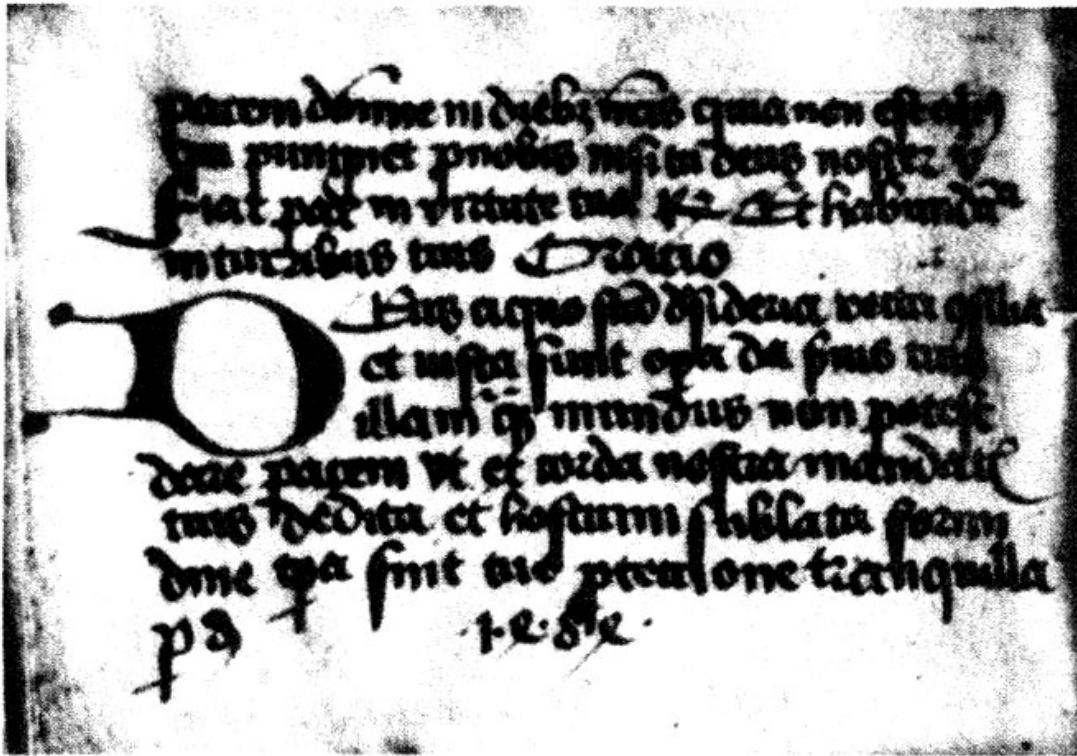 pacem domine in diebz nris quia non est alius
qui pungnet p nobis nisi tu deus noster V
Fiat pax in virtute tua R Et habundacia
in turribus tuis Oracio
Deus a quo sca desideria recta consilia
et iusta sunt opa da servis tuis
illam qua mundus non potest
dare pacem vt et corda nostra mandatis
tuis dedita et hostium sublata formi
dine tpa sint tue pteccione tranquilla
p d